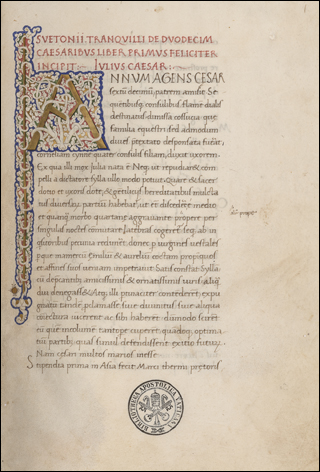 SVETONII·TRANQVILLI DE DVODECIM
CAESARIBVS LIBER PRIMVS FELICITER
INCIPIT· IVLIVS CAESAR·
ANNVM AGENS CESAR
sextū decimū, patrem amisit Se
quētibusq; consulibus flamē dialis
destinatus dimissa cossucia que
familia equestri sed admodum
dives pretextato desponsata fuerat,
corneliam cynne quater consulis filiam, duxit uxorem
Ex qua illi mox Julia nata ē Neq; ut repudiaret com
pelli a dictatore sylla ullo modo potuit Quare & sacer
dotio et uxoris dote, & gentiliciis hereditatibus mulcta
tus diversarū partiū habebat ut et discedere medio
et quanq morbo quartane aggravante prope per
singulas noctes commutare latebras cogeret seq; ab in
quisitoribus pecunia redimet donec p virgines vestales
pque mamercū Emiliū & aurelium cottam propiquos
et affines suos veniam impetravit Satis constat Sylla
cū deprecantibus amicissimis & ornatissimis viris aliq
diu denegasset atq; illi pertinaciter contenderet expu
gnatū tandē proclamasse sive divinitus sive aliqua
coiectura vincerent ac sibi haberet dūmodo scirēt
eū quē incolumē tantopere cuperēt quādoq; optima
tiū partibus, quas simul defendissent exitio futurū
Nam cesari multos marios inesse
Stipendia prima in Asia fecit Marci thermi pretoris
BIBLIOTHECA APOSTOLICA VATICANA